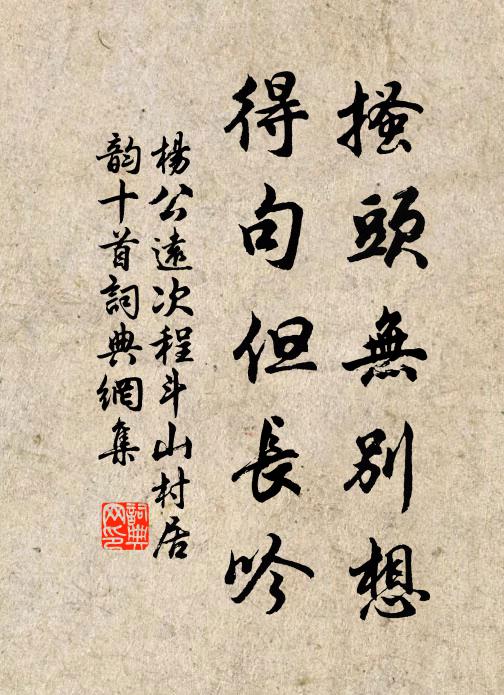 搔頭無別想
得句但長吟
楊公遠次程斗山村居
韵十首詞典網集
詞典網印